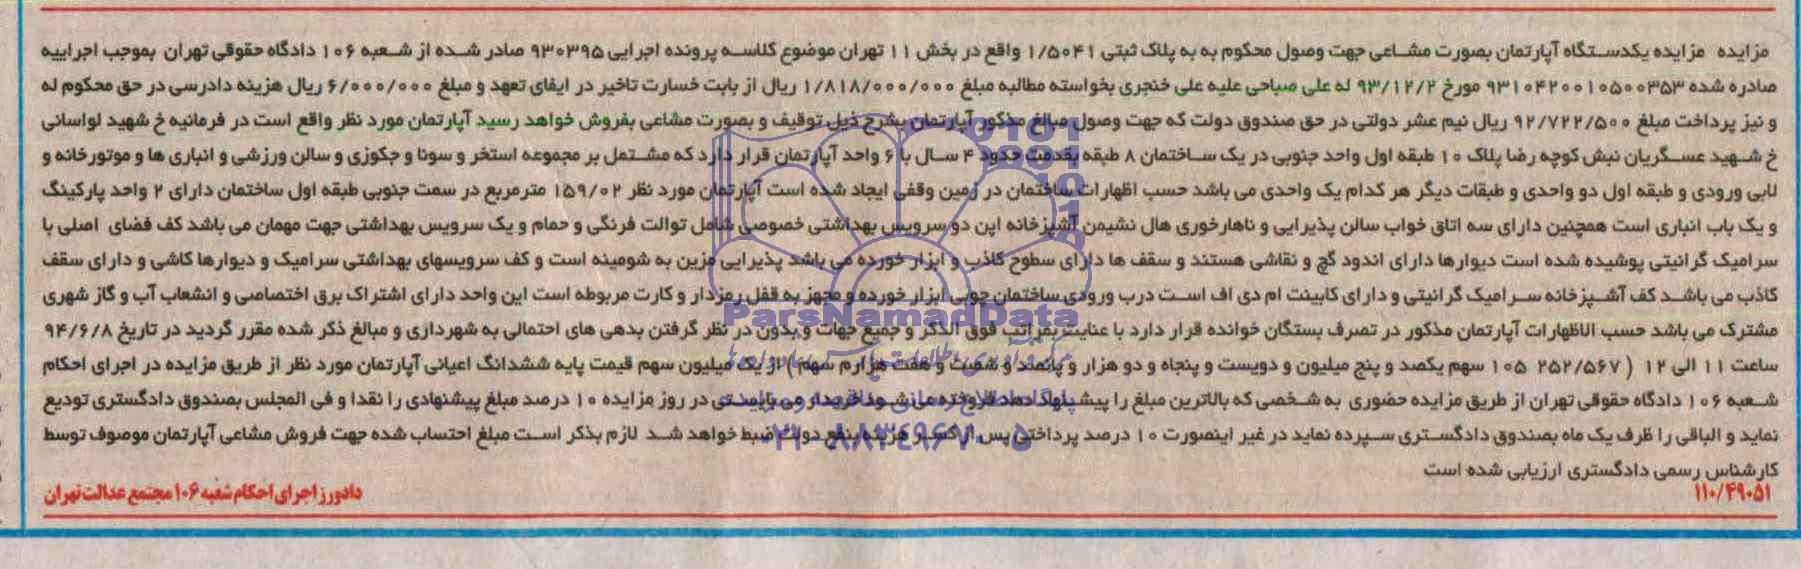 مزایده مزایده یکدستگاه آپارتمان بصورت مشاعی جهت وصول محکوم به به پلاک ثبتی ۱/۵۰۴۱ واقع در بخش ۱۱ تهران موضوع کلاسه پرونده اجرایی ۹۳۰۳۹۵ صادر شده از شعبه ۱۰۶ دادگاه حقوقی تهران بموجب اجراییه
صادره شده ۹۳۱۰۴۲۰۰۱۰۵۰۰۳۵۳ مورخ ۹۳/۱۲/۲ له علی صباحی علیه علی خنجری بخواسته مطالبه مبلغ ۱/۸۱۸/۰۰۰/۰۰۰ ریال از بابت خسارت تاخیر در ایفای تعهد و مبلغ ۶/۰۰۰/۰۰۰ ریال هزینه دادرسی در حق محکوم له
و نیز پرداخت مبلغ ۹۲/۷۲۲/۵۰۰ ریال نیم عشر دولتی در حق صندوق دولت که جهت وصول مبالغ مذکور آپارتمان بشرح ذیل توقیف و بصورت مشاعی بفروش خواهد رسید آپارتمان مورد نظر واقع است در فرمانیه خ شهید لواسانی
خ شهید عسگریان نبش کوچه رضا پلاک ۱۰ طبقه اول واحد جنوبی در یک ساختمان ۸ طبقه بقدمت حدود ۴ سال با ۶ واحد آپارتمان قرار دارد که مشتمل بر مجموعه استخر و سونا و جکوزی و سالن ورزشی و انباری ها و موتورخانه و
لابی ورودی و طبقه اول دو واحدی و طبقات دیگر هر کدام یک واحدی می باشد حسب اظهارات ساختمان در زمین وقفی ایجاد شده است آپارتمان مورد نظر ۱۵۹/۰۲ مترمربع در سمت جنوبی طبقه اول ساختمان دارای ۲ واحد پارکینگ
و یک باب انباری است همچنین دارای سه اتاق خواب سالن پذیرایی و ناهارخوری هال نشیمن آشپزخانه اپن دو سرویس بهداشتی خصوصی شامل توالت فرنگی و حمام و یک سرویس بهداشتی جهت مهمان می باشد کف فضای اصلی با
سرامیک گرانیتی پوشیده شده است دیوارها دارای اندود گچ و نقاشی هستند و سقف ها دارای سطوح کاذب و ابزار خورده می باشد پذیرایی مزین به شومینه است و کف سرویسهای بهداشتی سرامیک و دیوارها کاشی و دارای سقف
کاذب می باشد کف آشپزخانه سرامیک گرانیتی و دارای کابینت ام دی اف است درب ورودی ساختمان چوبی ابزار خورده و مجهز به قفل رمزدار و کارت مربوطه است این واحد دارای اشتراک برق اختصاصی و انشعاب آب و گاز شهری
مشترک می باشد حسب الاظهارات آپارتمان مذکور در تصرف بستگان خوانده قرار دارد با عنایت بمراتب فوق الذکر و جمیع جهات و بدون در نظر گرفتن بدهی های احتمالی به شهرداری و مبالغ ذکر شده مقرر گردید در تاریخ ۹۴/۶/۸
ساعت ۱۱ الی ۱۲ ( ۲۵۲/۵۶۷ ۱۰۵ سهم یکصد و پنج میلیون و دویست و پنجاه و دو هزار و پانصد و شصت و هفت هزارم سهم) از یک میلیون سهم قیمت پایه ششدانگ اعیانی آپارتمان مورد نظر از طریق مزایده در اجرای احکام
شعبه ۱۰۶ دادگاه حقوقی تهران از طریق مزایده حضوری به شخصی که بالاترین مبلغ را پیشنهاد دهد فروخته می شود خریدار می بایستی در روز مزایده ۱۰ درصد مبلغ پیشنهادی را نقدا و فی المجلس بصندوق دادگستری تودیع
نماید و الباقی را ظرف یک ماه بصندوق دادگستری سپرده نماید در غیر اینصورت ۱۰ درصد پرداختی پس از کسر هزینه بنفع دولت ضبط خواهد شد لازم بذکر است مبلغ احتساب شده جهت فروش مشاعی آپارتمان موصوف توسط
کارشناس رسمی دادگستری ارزیابی شده است
۱۱۰/۴۹۰۵۱
دادورز اجرای احکام شعبه ۱۰۶ مجتمع عدالت تهران
ParsNamadData
۰۲۱-۸۸۳۴۹۶۷۰-۵